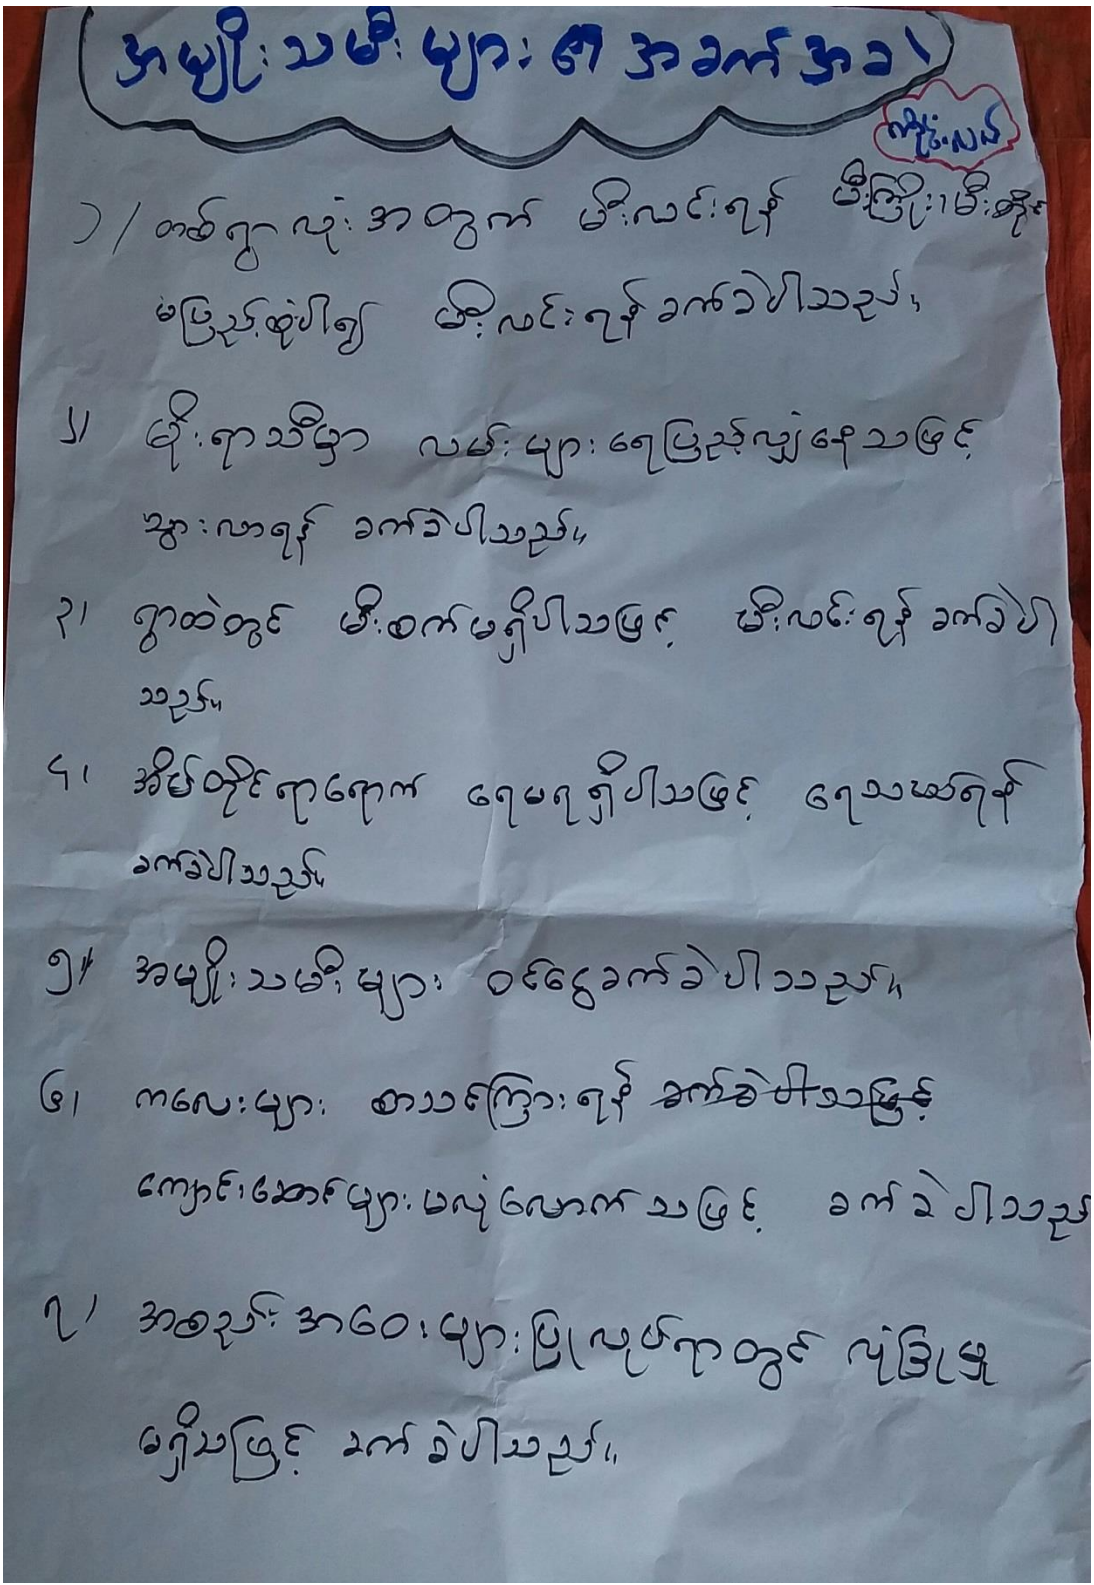 အမျိုးသမီးများ၏ အခက်အခဲ
ကျိုင်းလယ်
၁/ တစ်ရွာလုံးအတွက် မီးလင်းရန် မီးကြိုး၊ မီးတိုင်
မပြည့်စုံပါ၍ မီးလင်းရန် ခက်ခဲပါသည်။
၂/ မိုးရာသီမှာ လမ်းများ ရေပြည့်လျှံနေသဖြင့်
သွားလာရန် ခက်ခဲပါသည်။
၃၊ ရွာထဲတွင် မီးစက်မရှိပါသဖြင့် မီးလင်းရန် ခက်ခဲပါ
သည်။
၄၊ အိမ်တိုင်ရာရောက် ရေမရရှိပါသဖြင့် ရေသယ်ရန်
ခက်ခဲပါသည်။
၅။ အမျိုးသမီးများ ဝင်ငွေခက်ခဲပါသည်။
၆၊ ကလေးများ စာသင်ကြားရန် ခက်ခဲပါသဖြင့်
ကျောင်းဆောင်များ မလုံလောက်သဖြင့် ခက်ခဲပါသည်
၇၊ အစည်းအဝေးများပြုလုပ်ရာတွင် လုံခြုံမှု
မရှိသဖြင့် ခက်ခဲပါသည်။